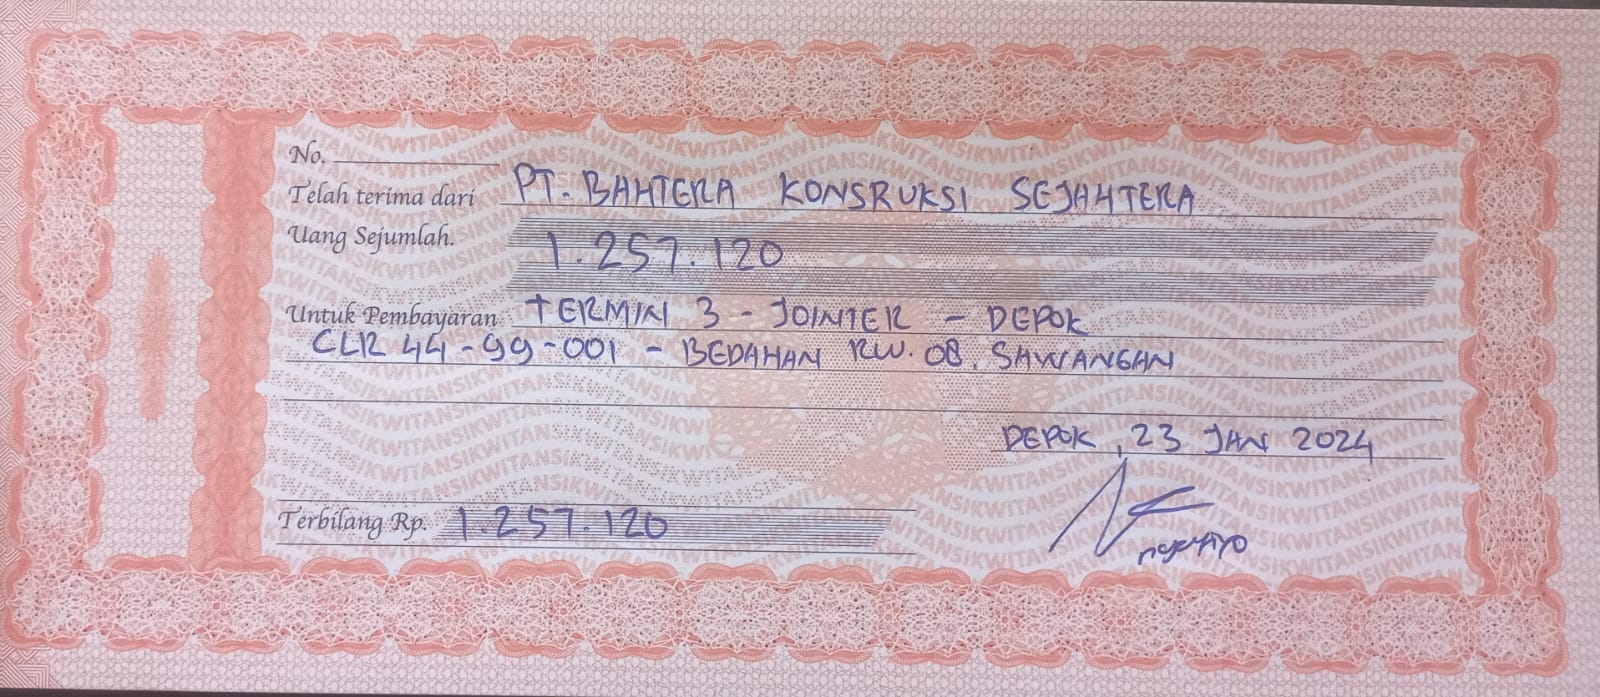 No.
Telah terima dari PT. BAHTERA KONSRUKSI SEJAHTERA
Uang Sejumlah. 1.257.120
Untuk Pembayaran TERMIN 3 - JOINTER - DEPOK
CLR 44-99-001 - BEDAHAN RW. 08. SAWANGAN
DEPOK, 23 JAN 2024
Terbilang Rp. 1.257.120